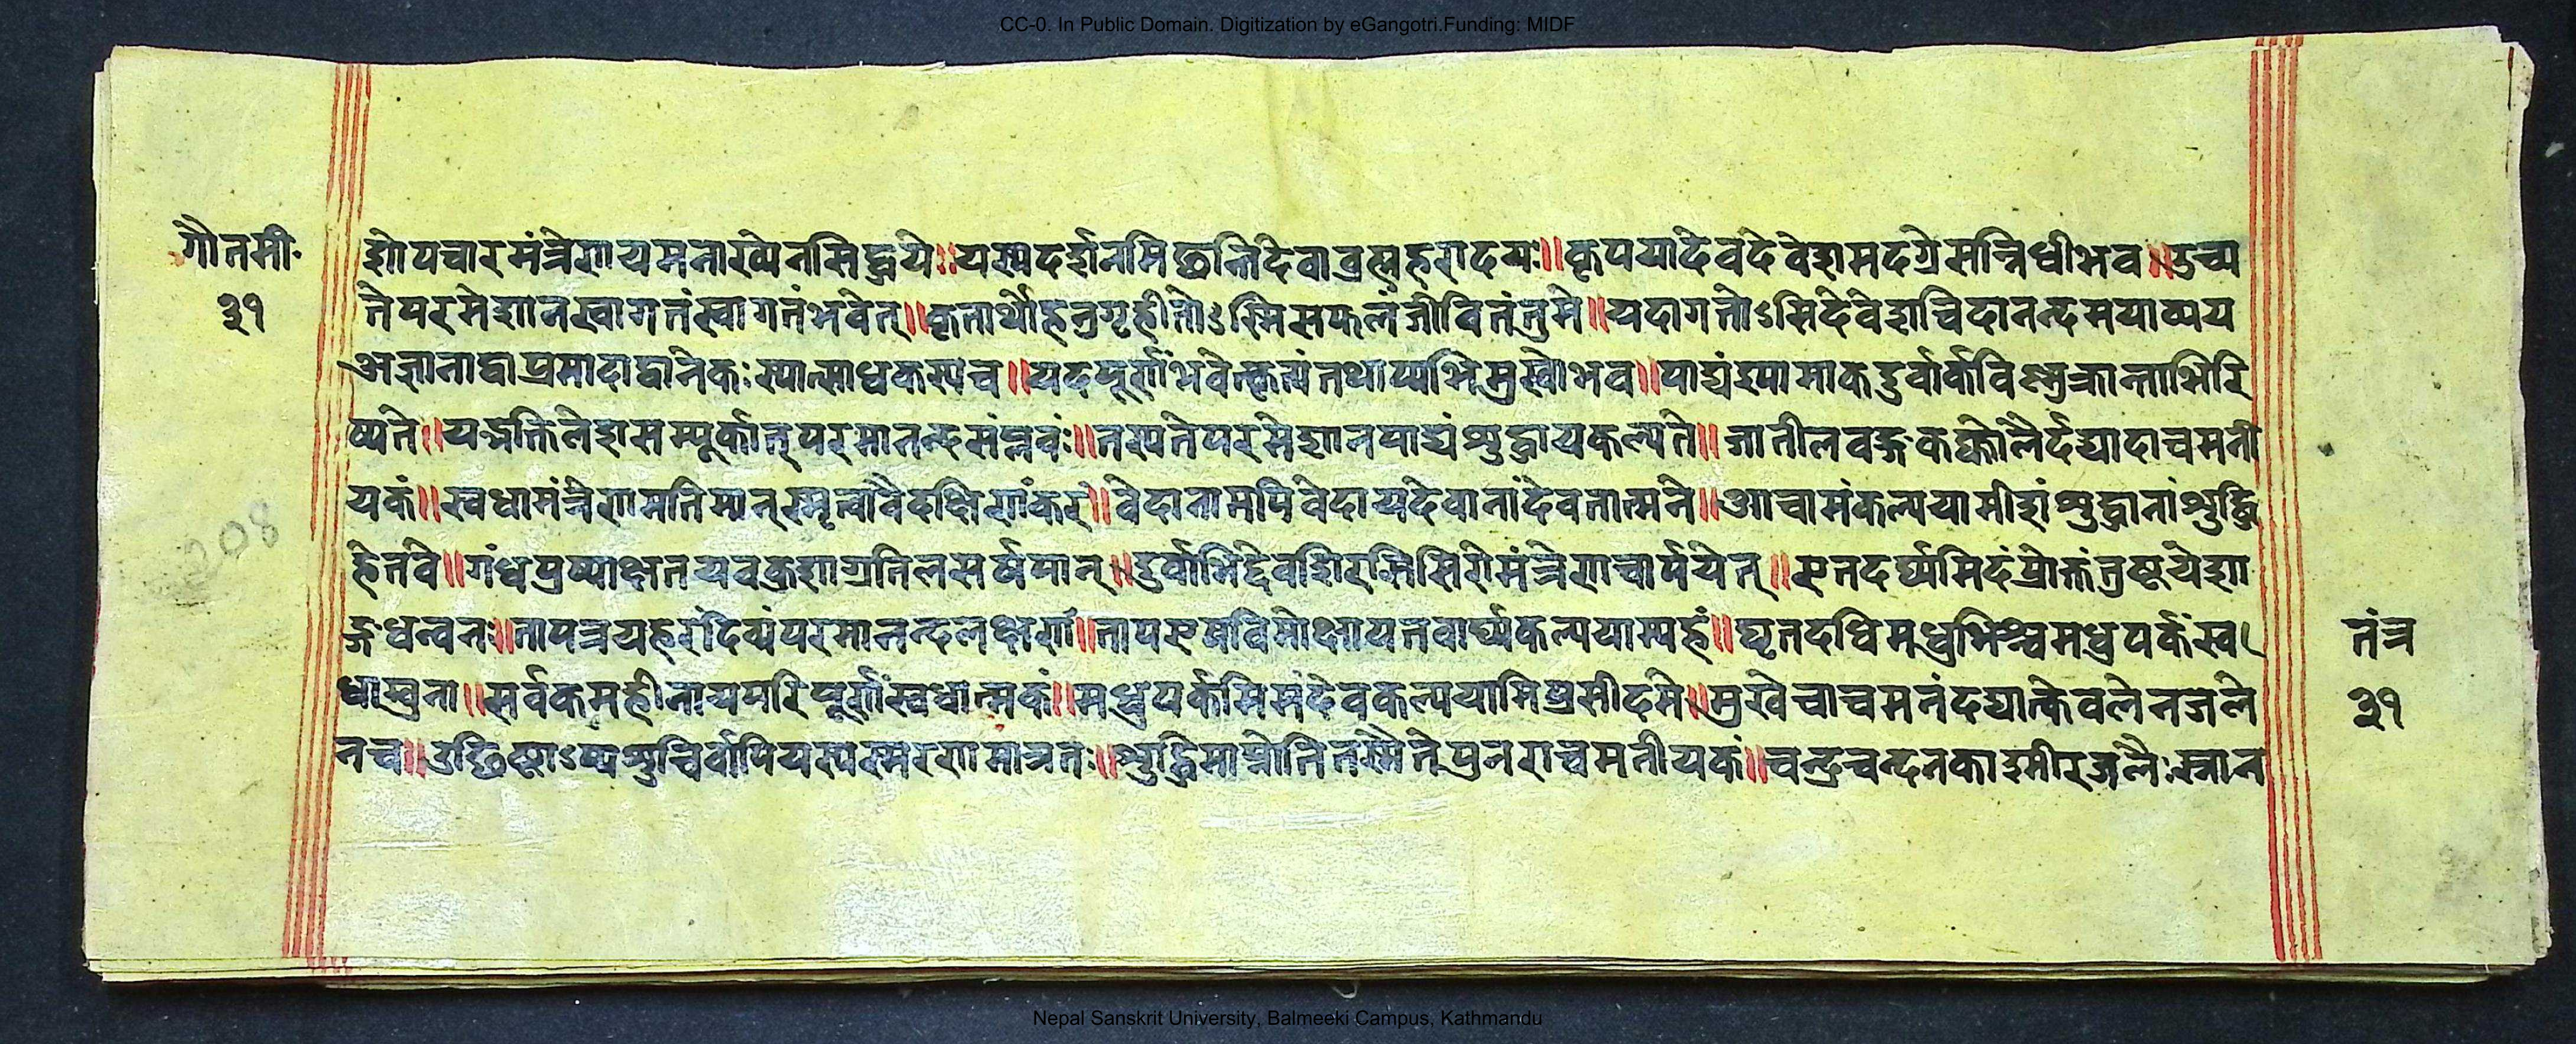 CC-0. In Public Domain. Digitization by eGangotri.Funding: MIDF
गौतमी॰
३१
शोपचारमंत्रेणायमनाख्येनसिद्धये॥यस्यदर्शनमिछन्तिदेवाब्रह्महरादयः॥कृपयादेवदेवेशमदग्रेसन्निधीभव॥उच्य
तेपरमेशानस्वागतंस्वागतंभवेत्॥कृतार्थोहनुगृहीतोऽस्मिसफलंजीवितंतुमे॥यदागतोऽसिदेवेशचिदानन्दमयाव्यय
अज्ञानाद्वाप्रमादाद्वानेकःस्यात्साधकस्यच॥यदपूर्णंभवेत्कृत्यंतथाप्यभिमुखोभव॥पाद्यंश्यामाकदुर्वार्कविष्णुक्रान्ताभिरि
ष्यते॥यद्भक्तिलेशसम्पूर्कात्परमानन्दसंप्लवः॥तस्यतेपरमेशानपाद्यंशुद्धायकल्पते॥जातीलवङ्गकक्कोलैर्दद्यादाचमनी
यकं॥स्वधामंत्रेणमतिमान्स्मृत्वावैदक्षिणंकरं॥वेदानामपिवेदायदेवानांदेवतात्मने॥आचामंकल्पयामीशंशुद्धानांशुद्धि
हेतवे॥गंधपुष्पाक्षतयवकुशाग्रतिलसर्षपान्॥दुर्वाभिर्द्देवशिरसिसिरोमंत्रेणचार्पयेत्॥एतदर्घ्यमिदंप्रोक्तंतुष्टयेशा
ङ्गधन्वनः॥तापत्रयहरंदिव्यंपरमानन्दलक्षणं॥तापत्रयविमोक्षायतवार्घ्यंकल्पयाम्यहं॥घृतदधिमधुभिश्चमधुपर्कंस्व
धाम्बुना॥सर्वकमहीनायपरिपूर्णंस्वधात्मकं॥मधुपर्कमिमंदेवकल्पयामिप्रसीदमे॥मुखेचाचमनंदद्यात्केवलेनजले
नच॥उच्छिष्टाऽप्यशुचिर्वापियस्यस्मरणमात्रतः॥शुद्धिमाप्नोतितस्मैतेपुनराचमनीयकं॥चन्द्रचन्दनकाश्मीरजलैःस्नान
208
तंत्र
३१
Nepal Sanskrit University, Balmeeki Campus, Kathmandu